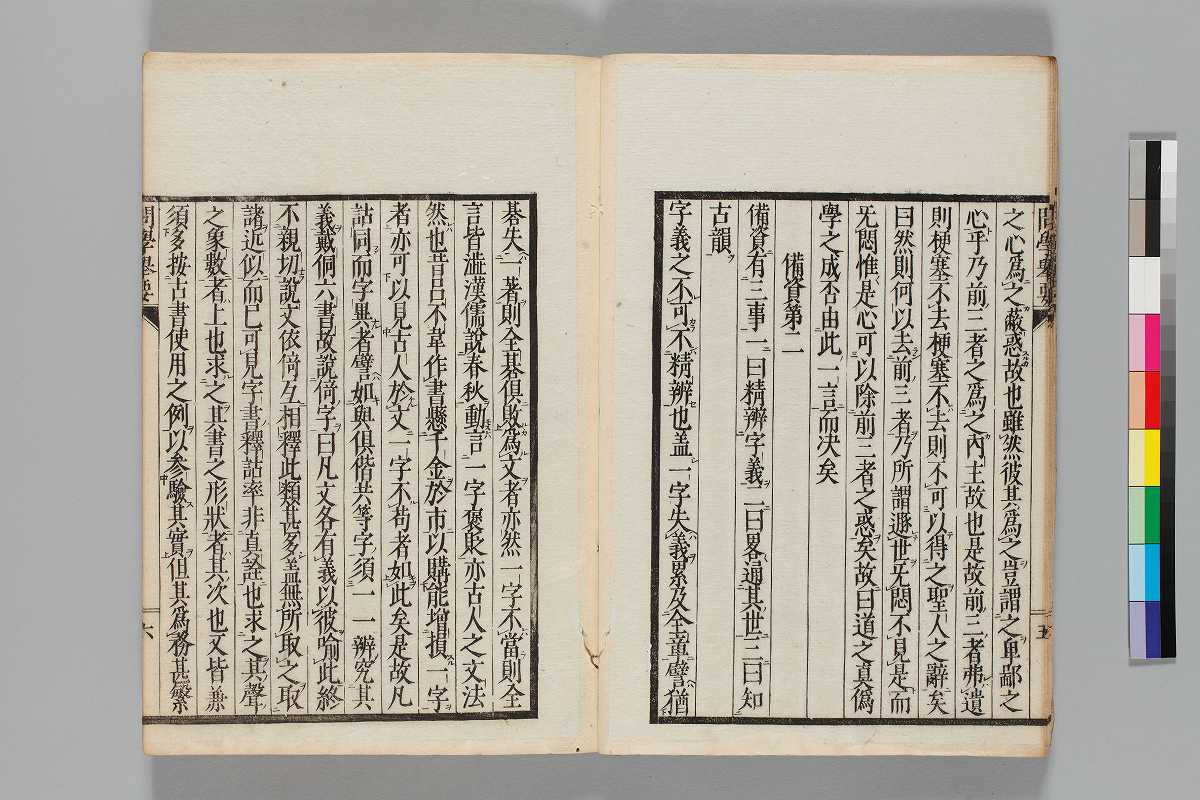 問學擧要
五
之心爲之蔽惑故也雖然彼其爲之豈謂之卑鄙之
心乎乃前三者之爲之內主故也是故前三者弗遺
則梗塞不去梗塞不去則不可以得之聖人之辭矣
曰然則何以去前三者乃所謂遯世旡悶不見是而
旡悶惟是心可以除前三者之惑矣故曰道之真僞
學之成否由此一言而決矣
備資第二
備資有三事一曰精辨字義二曰畧通其世三曰知
古韻
字義之不可不精辨也盖一字失義累及全章譬猶
棊失一著則全棊俱敗爲文者亦然一字不當則全
言皆澁漢儒說春秋動言一字褒貶亦古人之文法
然也昔呂不韋作書懸千金於市以購能增損一字
者亦可以見古人於文一字不苟者如此矣是故凡
詁同而字異者譬如與俱偕共等字須一一辨究其
義戴侗六書故說倚字曰凡文各有義以彼喻此終
不親切說文依倚互相釋此類甚多盖無所取之取
諸近似而已可見字書釋詁率非真詮也求之其聲
之象數者上也求之其書之形狀者其次也又皆兼
須多按古書使用之例以參驗其實但其爲務甚繁
問學擧要
六